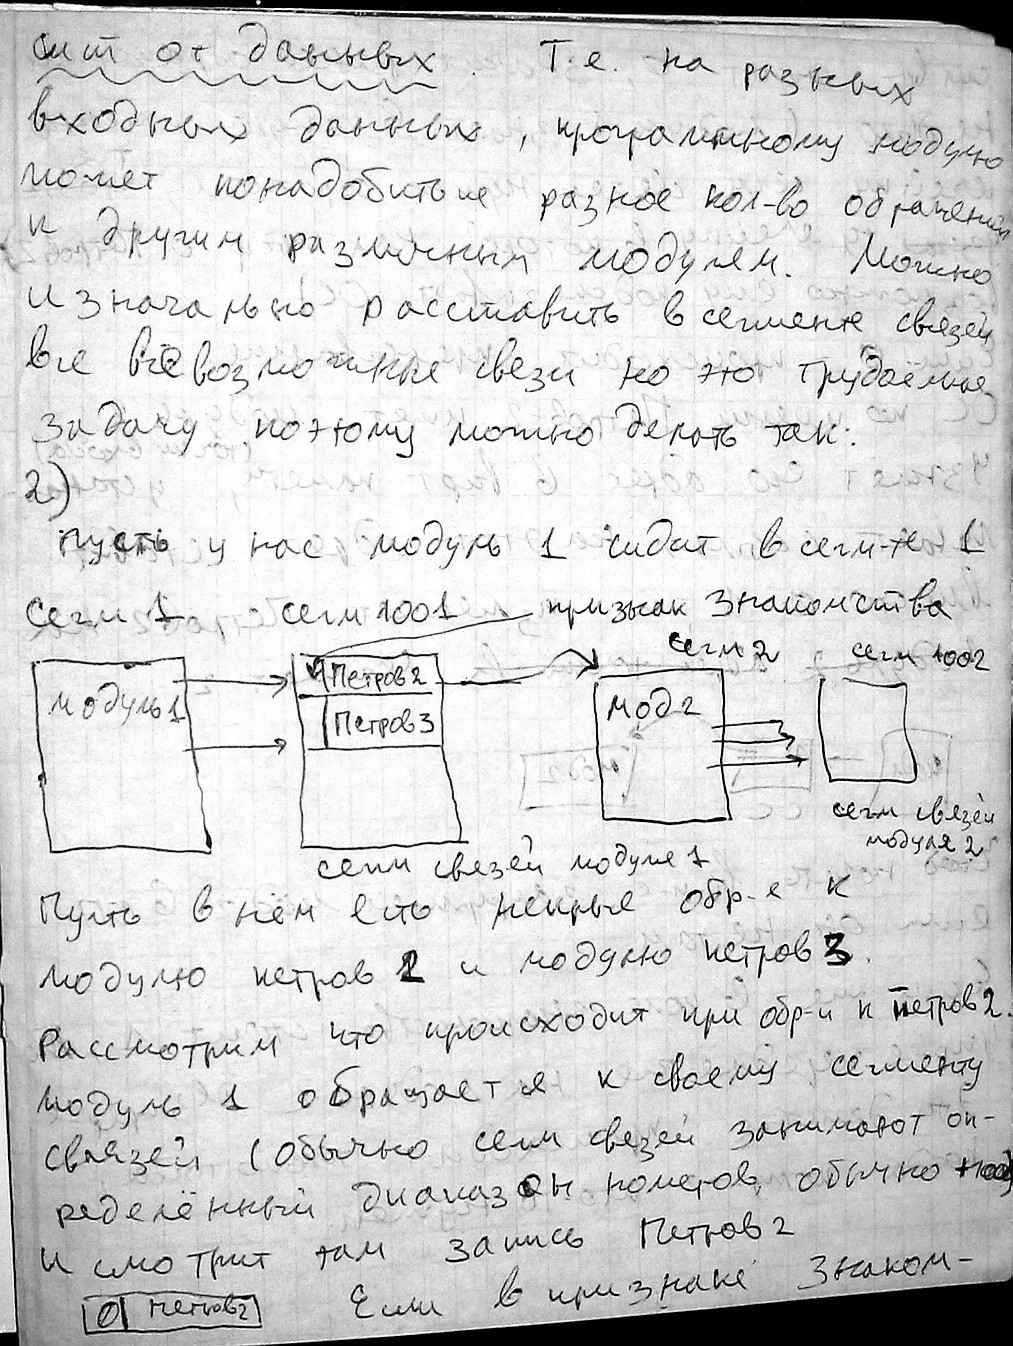 сит от данных. Т.е. на разных
входных данных, программному модулю
может понадобиться разное кол-во обращений
к другим различным модулям. Можно
изначально расставить в сегменте связей
все всевозможные связи но это трудоёмкая
задачу поэтому можно делать так:
2)
пусть у нас модуль 1 сидит в сегм-те 1
сегм 1 сегм 1001 признак знакомства
сегм 2 сегм 1002
модуль 1 Петров 2 мод 2
Петров 3
сегм связей
модуля 2
сегм связей модуля 1
Пусть в нём есть некрые обр-е к
модулю петров 2 и модулю петров 3.
Рассмотрим что происходит при обр-и к петров 2.
модуль 1 обращается к своему сегменту
связей (обычно сегм связей занимают оп-
ределённый диапазон номеров, обычно
и смотрит там запись Петров 2
0 петров 2 Если в признаке знаком-